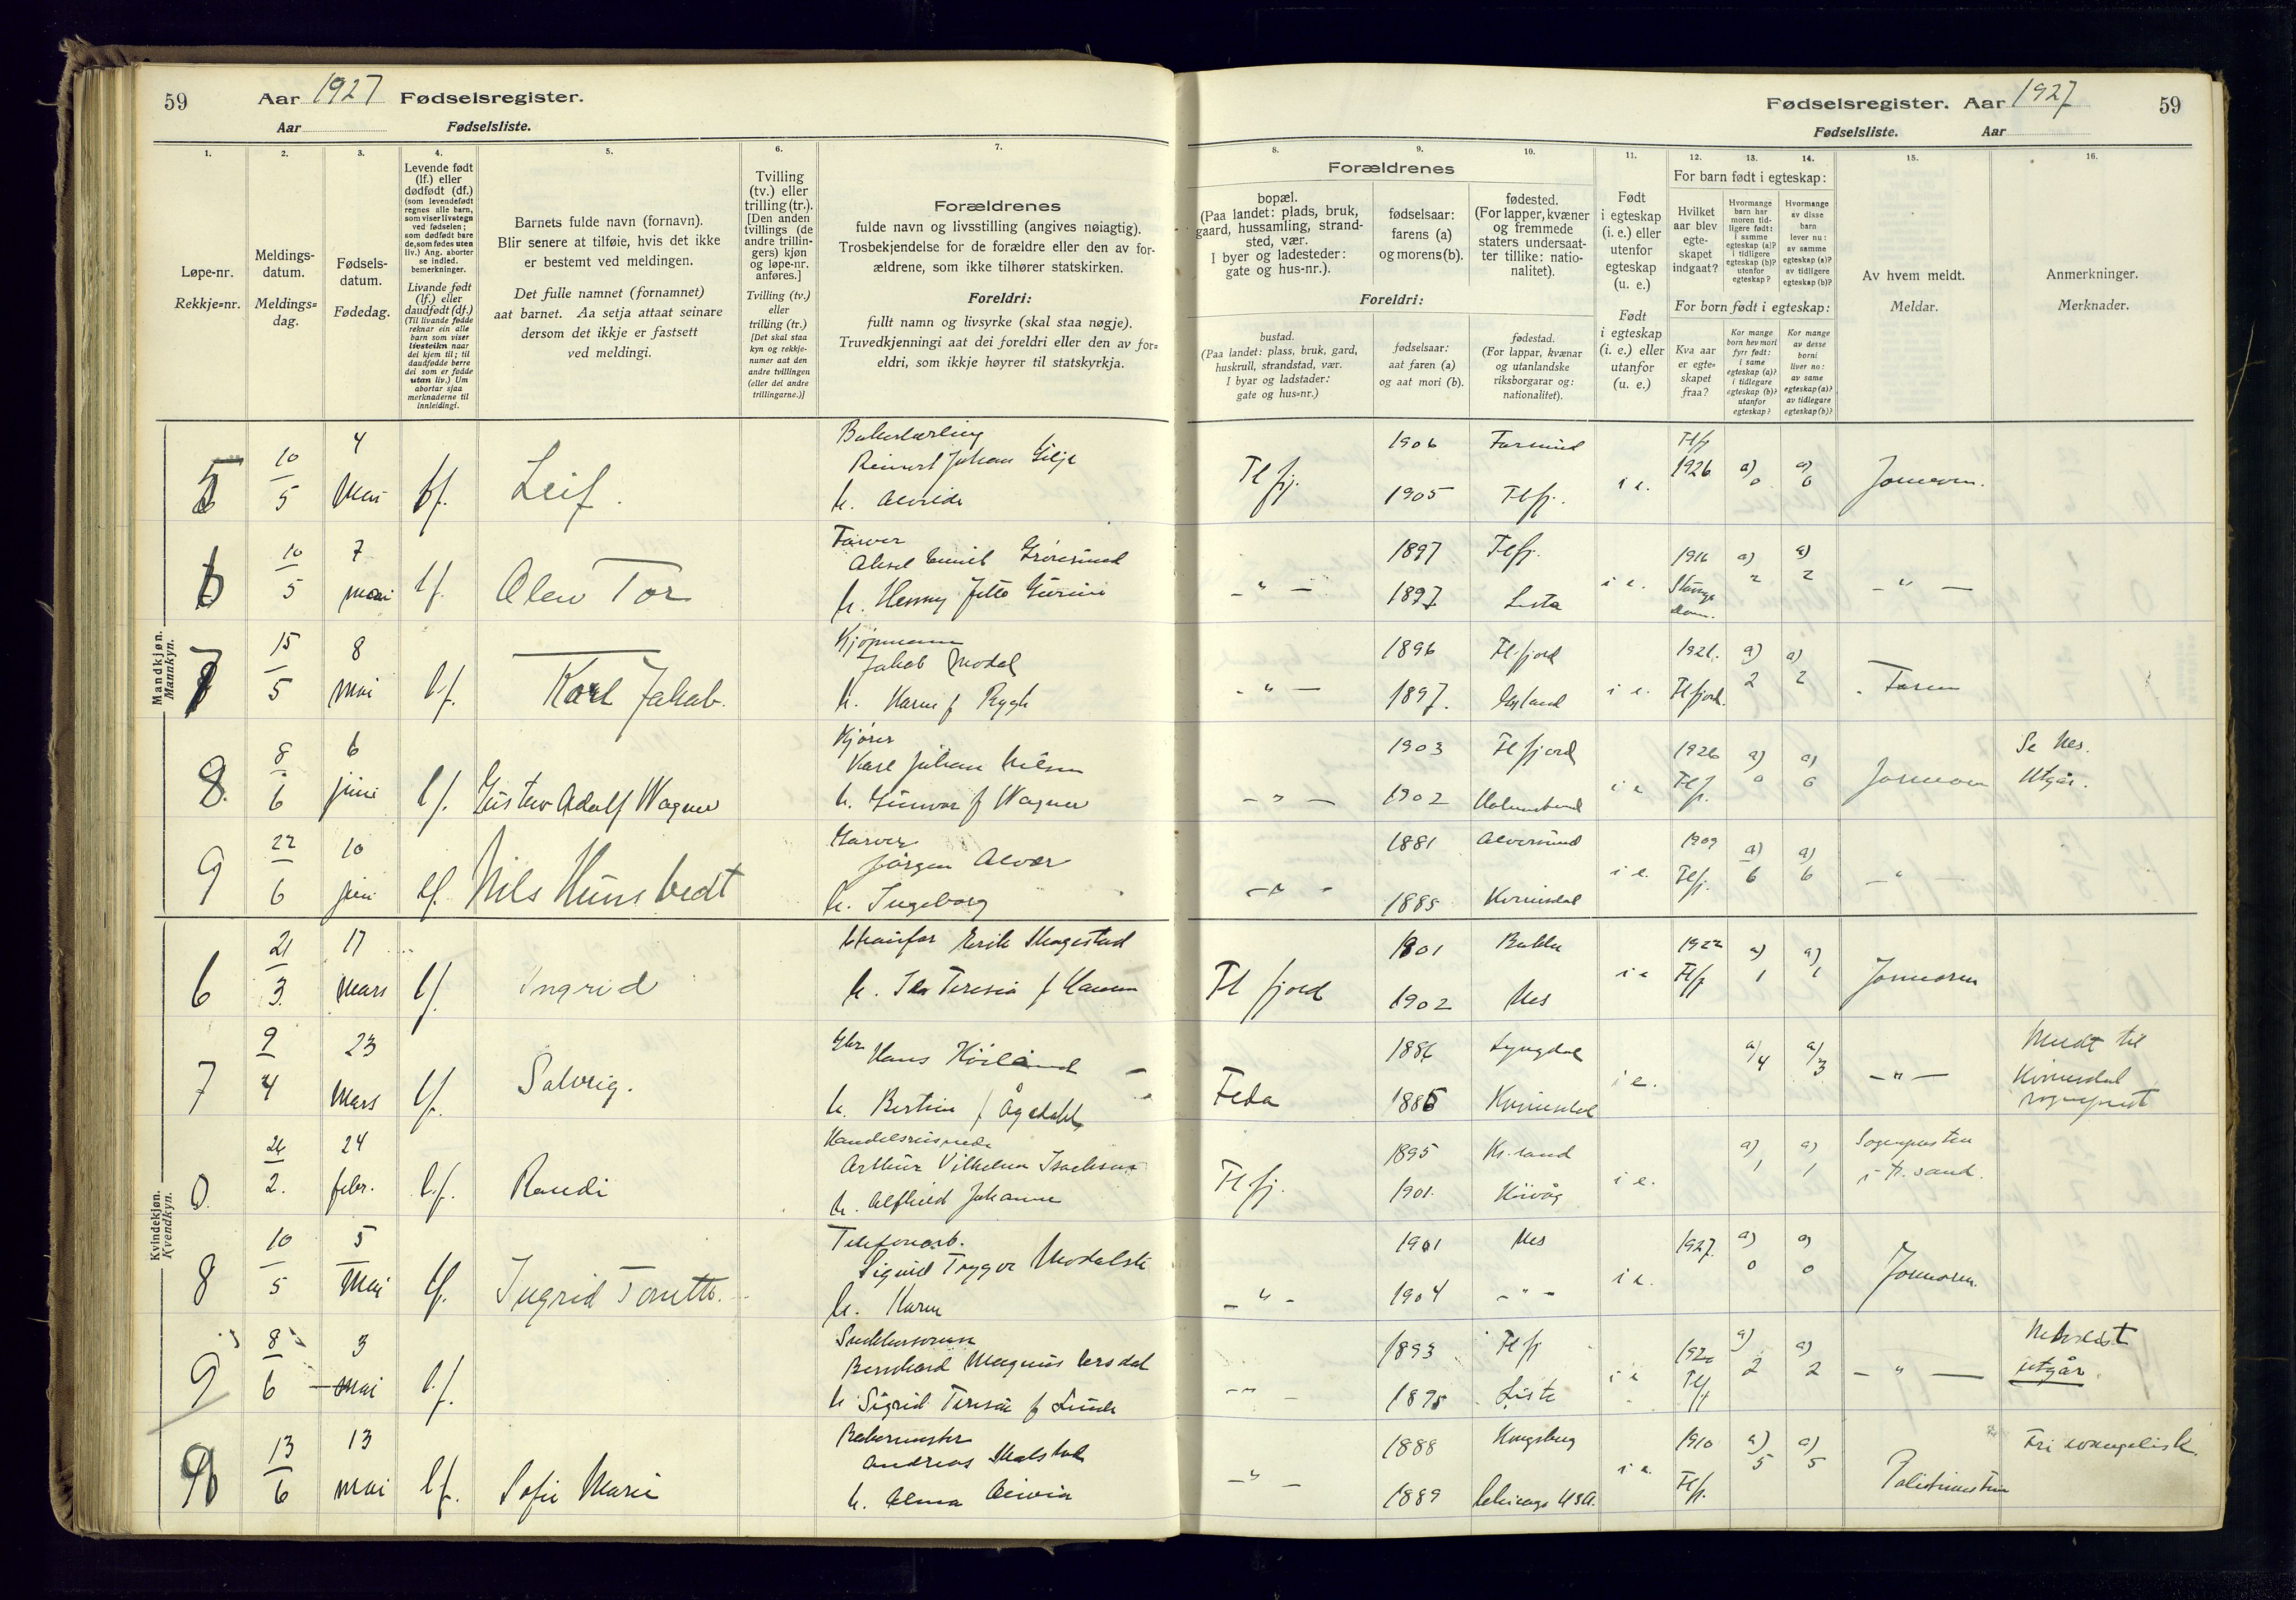 59 Aar 1927 Fødselsregister.
Aar Fødselsliste.
Fødselsregister. Aar 1927 59
Fødselsliste. Aar
1. 2. 3. 4. 5. 6. 7.
Løpe-nr.
Rekkje=nr.
Meldings-
datum.
Meldings=
dag.
Fødsels-
datum.
Fødedag.
Levende født
(lf.) eller
dødfødt (df.)
(som levendefødt
regnes alle barn,
som viser livstegn
ved fødselen;
som dødfødt bare
de, som fødes uten
liv.) Ang. aborter
se indled.
bemerkninger.
Livande født
(lf.) eller
daudfødt (df.)
(Til livande fødde
reknar ein alle
barn som viser
livsteikn naar
dei kjem til; til
daudfødde berre
dei som er fødde
utan liv.) Um
abortar sjaa
merknaderne til
innleidingi.
Barnets fulde navn (fornavn).
Blir senere at tilføie, hvis det ikke
er bestemt ved meldingen.
Det fulle namnet (fornamnet)
aat barnet. Aa setja attaat seinare
dersom det ikkje er fastsett
ved meldingi.
Tvilling
(tv.) eller
trilling (tr.).
[Den anden
tvillings (de
andre trillin-
gers) kjøn
og løpe-nr.
anføres.]
Tvilling (tv.)
eller
trilling (tr.)
[Det skal staa
kyn og rekkje-
numer aat den
andre tvillingen
(eller dei andre
trillingarne.)]
Forældrenes
fulde navn og livsstilling (angives nøiagtig).
Trosbekjendelse for de forældre eller den av for-
ældrene, som ikke tilhører statskirken.
Foreldri:
fullt namn og livsyrke (skal staa nøgje).
Truvedkjenningi aat dei foreldri eller den av for=
eldri, som ikkje høyrer til statskyrkja.
8. 9. 10. 11. 12. 13. 14. 15. 16.
Forældrenes
bopæl.
(Paa landet: plads, bruk,
gaard, hussamling, strand-
sted, vær.
I byer og ladesteder:
gate og hus-nr.).
fødselsaar:
farens (a)
og morens (b).
fødested.
(For lapper, kvæner
og fremmede
staters undersaat-
ter tillike: natio-
nalitet).
Foreldri:
bustad.
(Paa landet: plass, bruk, gard,
huskrull, strandstad, vær.
I byar og ladstader:
gate og hus=nr.)
fødselsaar:
aat faren (a)
og aat mori (b).
fødestad.
(For lappar, kvænar
og utanlandske
riksborgarar og:
nationalitet).
Født
i egteskap
(i. e.) eller
utenfor
egteskap
(u. e.)
Født
i egteskap
(i. e.) eller
utanfor
egteskap
(u. e.)
For barn født i egteskap:
Hvilket
aar blev
egte-
skapet
indgaat?
Hvormange
barn har
moren tid-
ligere født:
i samme
egteskap (a)?
i tidligere
egteskap (b)?
utenfor
egteskap?
Hvormange
av disse
barn
lever nu:
av samme
egteskap (a)?
av tidligere
egteskap (b)?
For born født i egteskap:
Kva aar
er egte-
skapet
fraa?
Kor mange
born hev mori
fyrr født:
i same
egteskap (a)?
i tidlegare
egteskap (b)?
utanfor
egteskap?
Kor mange
av desse
borni
liver no:
av same
egteskap (a)?
av tidlegare
egteskap (b)?
Av hvem meldt.
Meldar.
Anmerkninger.
Merknader.
Mandkjøn.
Mannkyn.
5 10/5 4 Mai lf. Leif. Johan h. Fl.fj. 1906 1905 Fl.fj. i e. Fl.fj 1926 a) 0 a) 0 Jormoren.
6 10/5 7 mai lf. Tor h. Henny 1897 Fl.fj. 1897 Lista i e. 1916 a) 2 a) 2
7 15/5 8 mai l.f. Karl Jakob. Kjøpmann Jakob Modal h. Karen f Rygh 1896 Fl.fjord 1897. i e. Fl.fjord. a) 2 a) 2 Faren
8 8/6 6 juni l.f. Gustav Adolf Wagner Kjører Karl Johan Nilsen h. Gunvor f Wagner 1903 Fl.fjord 1902 i e 1926 Fl.fj. a) 0 a) 0 Jormoren Se Nes. Utgår.
9 22/6 10 juni lf. Nils Hunsbedt Garver Jørgen Alvær h. Ingeborg 1881 Alversund 1885 Kvinesdal i e. 1909 Fl.fj. a) 6 a) 6
Kvindekjøn.
Kvendkyn.
6 21/3. 17 Mars lf. Ingrid Erik Skagestad h. Teresia f Hansen Fl fjord 1901 Bakke 1902 Nes i e 1922 Fl.fj a) 1 a) 1 Jormoren
7 9/4 23 Mars lf. Solveig. Gbr Hans h. Bertine f Ågedal Feda 1886 Lyngdal 1885 Kvinesdal i e. a) 4 a) 3 Meldt til Kvinesdal sogneprest
0 26/2. 24 febr. l.f. Randi Handelsreisende Arthur Vilhelm Isaksen h. Alfhild Johanne Fl.fj. 1895 Kr.sand 1901. Høvåg i e. a) 1 a) 1 Sognepresten i Kr.sand.
8 10/5 5 Mai lf. Ingrid Telefonarb. Sigurd Trygve h. Karen 1901 Nes 1904 i e. 1927. a) 0 a) 0 Jormoren.
9 8/6 3 mai l.f. Bernhard Magnus h Sigrid Teresie f Lunde 1893 Fl.fj 1895 Liste i e Fl.fj a) 2 a) 2 utgår.
9 13/6 13 mai lf. Sofie Marie Bakermester Andreas h. Alma 1888 Kongsberg 1889 Chicago USA. i e. 1910 Fl.fj. a) 5 a) 5 Fri evangelisk.